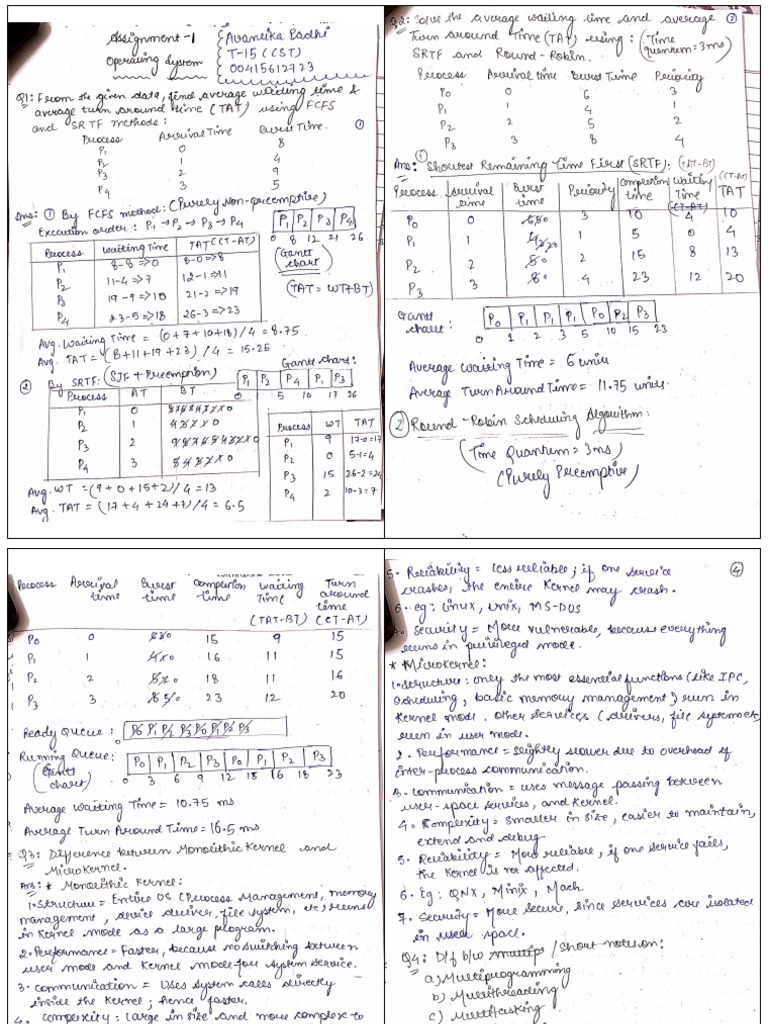 Assignment-1
Operating System
Avantika Padhi
T-15 (CST)
00415612723
Q1: From the given data, find average waiting time &
average turn around time (TAT) using FCFS
and SRTF methods:
Process Arrival Time Burst Time
P1 0 8
P2 1 4
P3 2 9
P4 3 5
Ans: ① By FCFS method: (Purely Non-preemptive)
Execution order: P1 → P2 → P3 → P4
P1 P2 P3 P4
0 8 12 21 26
(Gantt chart)
Process Waiting Time TAT (CT-AT)
P1 8-8 => 0 8-0 => 8
P2 11-4 => 7 12-1 => 11
P3 19-9 => 10 21-2 => 19
P4 23-5 => 18 26-3 => 23
(TAT = WT+BT)
Avg. Waiting Time = (0+7+10+18)/4 = 8.75
Avg. TAT = (8+11+19+23)/4 = 15.25
② By SRTF: (SJF + Preemption)
Gantt chart:
P1 P2 P4 P1 P3
0 5 10 17 26
Process AT BT
P1 0
P2 1
P3 2
P4 3
Process WT TAT
P1 9 17-0=17
P2 0 5-1=4
P3 15 26-2=24
P4 2 10-3=7
Avg. WT = (9+0+15+2)/4 = 13
Avg. TAT = (17+4+24+7)/4 = 6.5
②
Q2: Solve the average waiting time and average
Turn Around Time (TAT) using: (Time quantum = 3ms)
SRTF and Round-Robin.
Process Arrival time Burst Time Priority
P0 0 6 3
P1 1 4 1
P2 2 5 2
P3 3 8 4
Ans: ① Shortest Remaining Time First (SRTF): (TAT-BT) (CT-AT)
Process Arrival time Burst time Priority Completion time Waiting Time TAT
P0 0 3 10 4 10
P1 1 1 5 0 4
P2 2 2 15 8 13
P3 3 4 23 12 20
Gantt chart:
P0 P1 P1 P1 P0 P2 P3
0 1 2 3 5 10 15 23
Average Waiting Time = 6 units
Average Turn Around Time = 11.75 units.
② Round-Robin Scheduling Algorithm:
(Time Quantum = 3ms)
(Purely Preemptive)
Process Arrival time Burst time Completion time Waiting Time (TAT-BT) Turn around time (CT-AT)
P0 0 15 9 15
P1 1 16 11 15
P2 2 18 11 16
P3 3 23 12 20
Ready Queue: P0 P1 P2 P3 P0 P1 P2 P3
Running Queue: P0 P1 P2 P3 P0 P1 P2 P3
(Gantt chart) 0 3 6 9 12 15 16 18 23
Average Waiting Time = 10.75 ms
Average Turn Around Time = 16.5 ms
Q3: Difference between Monolithic Kernel and
Microkernel.
Ans: * Monolithic Kernel:
1. Structure = Entire OS (Process Management, memory
management, device driver, file system, etc) runs
in Kernel mode as a large program.
2. Performance = Faster, because no switching between
user mode and Kernel mode for system service.
3. Communication = Uses system calls directly
inside the Kernel; hence faster.
4. Complexity: large in size and more complex to
④
5. Reliability = less reliable; if one service
crashes, the entire Kernel may crash.
6. eg: Linux, Unix, MS-DOS
7. Security = More vulnerable, because everything
runs in privileged mode.
* Microkernel:
1. Structure: only the most essential functions (like IPC,
scheduling, basic memory management) run in
Kernel mode. Other services (drivers, file system etc)
run in user mode.
2. Performance = Slightly slower due to overhead of
inter-process communication.
3. Communication = uses message passing between
user-space services, and Kernel.
4. Complexity = Smaller in size, easier to maintain,
extend and debug.
5. Reliability = More reliable, if one service fails,
the Kernel is not affected.
6. Eg: QNX, Minix, Mach.
7. Security = More Secure, since services are isolated
in user space.
Q4: D/f b/w / Short notes on:
a) Multiprogramming
b) Multithreading
c) Multitasking